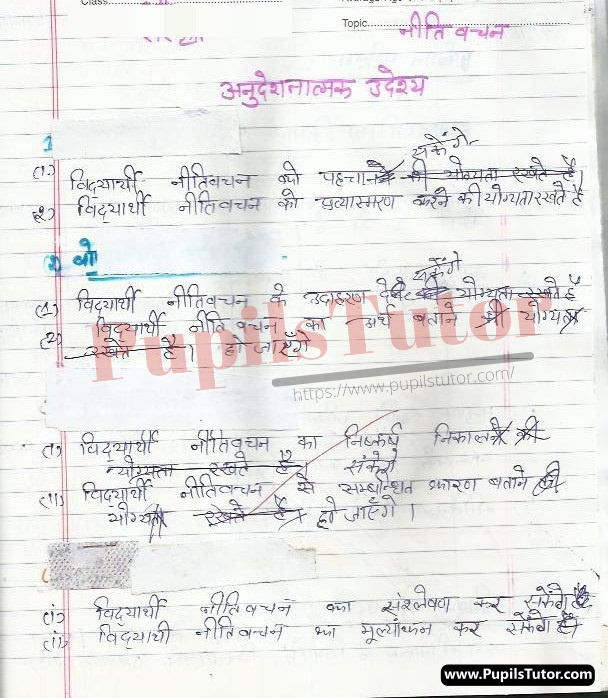 Class
Topic नीति वचन
अनुदेशनात्मक उदेश्य
1
सकेंगे
(1) विद्यार्थी नीतिवचन को पहचानने की योग्यता रखते है।
2) विद्यार्थी नीतिवचन को प्रत्यास्मरण करने की योग्यता रखते है
2) बो
सकेंगे
(1) विद्यार्थी नीतिवचन के उदाहरण देने की योग्यता रखते है
(2) विद्यार्थी नीतिवचन का अर्थ बताने की योग्यता
रखते है। हो जाएँगे
PupilsTutor
https://www.pupilstutor.com/
(i) विद्यार्थी नीतिवचन का निष्कर्ष निकालने की
योग्यता रखते है। सकेंगे
(ii) विद्यार्थी नीतिवचन से सम्बन्धित कारण बताने की
योग्यता रखते है। हो जाएँगे।
(i) विद्यार्थी नीतिवचन का संश्लेषण कर सकेंगे है
(ii) विद्यार्थी नीतिवचन का मूल्यांकन कर सकेंगे है।
www.PupilsTutor.com